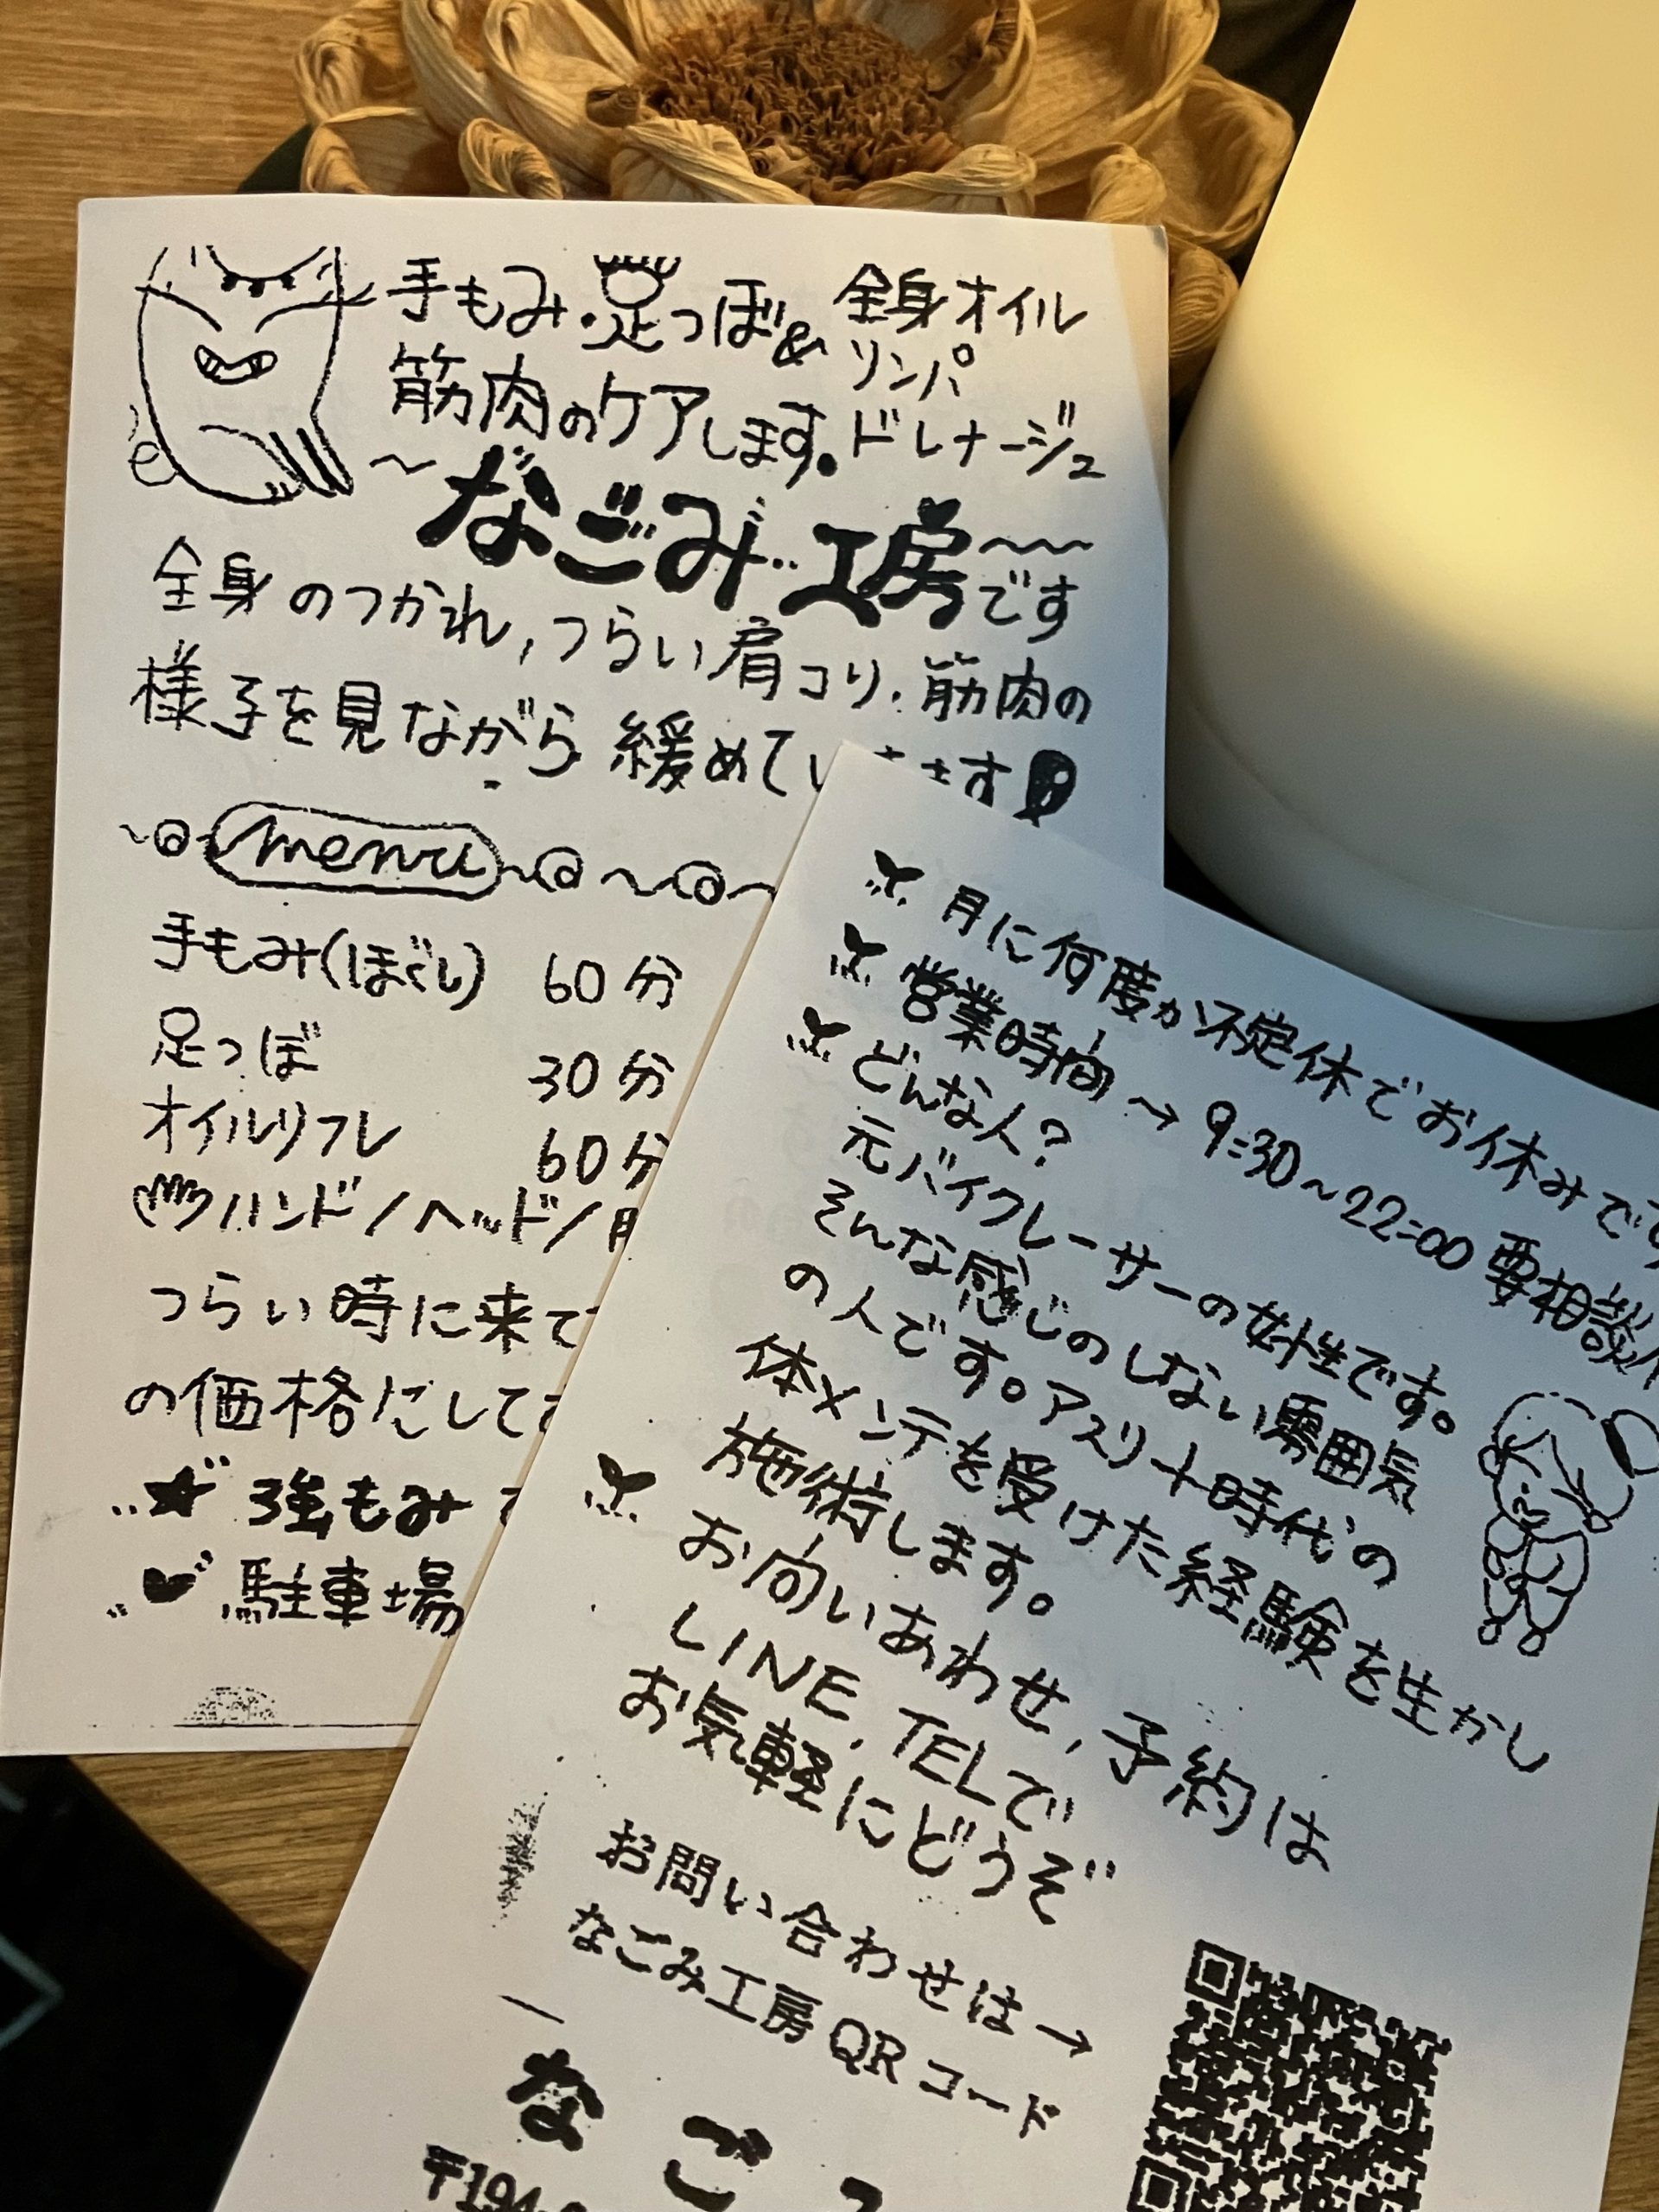 手もみ・足つぼ& 全身オイル
リンパ
筋肉のケアします。ドレナージュ
〜なごみ工房〜〜
です
全身のつかれ,つらい肩コリ.筋肉の
様子を見ながら緩めて
ます
menu
手もみ(ほぐし) 60分
足つぼ 30分
オイルリフレ 60分
ハンド/ヘッド/
つらい時に来て
の価格にして
強もみ
駐車場
月に何度か不定休でお休みです
営業時間→9:30〜22:00 要相談
どんな人?
元バイクレーサーの女性です。
そんな感じのしない雰囲気
の人です。アスリート時代の
体メンテを受けた経験を生かし
施術します。
お問いあわせ,予約は
LINE,TELで
お気軽にどうぞ
お問い合わせは→
なごみ工房QRコード
なご
〒194